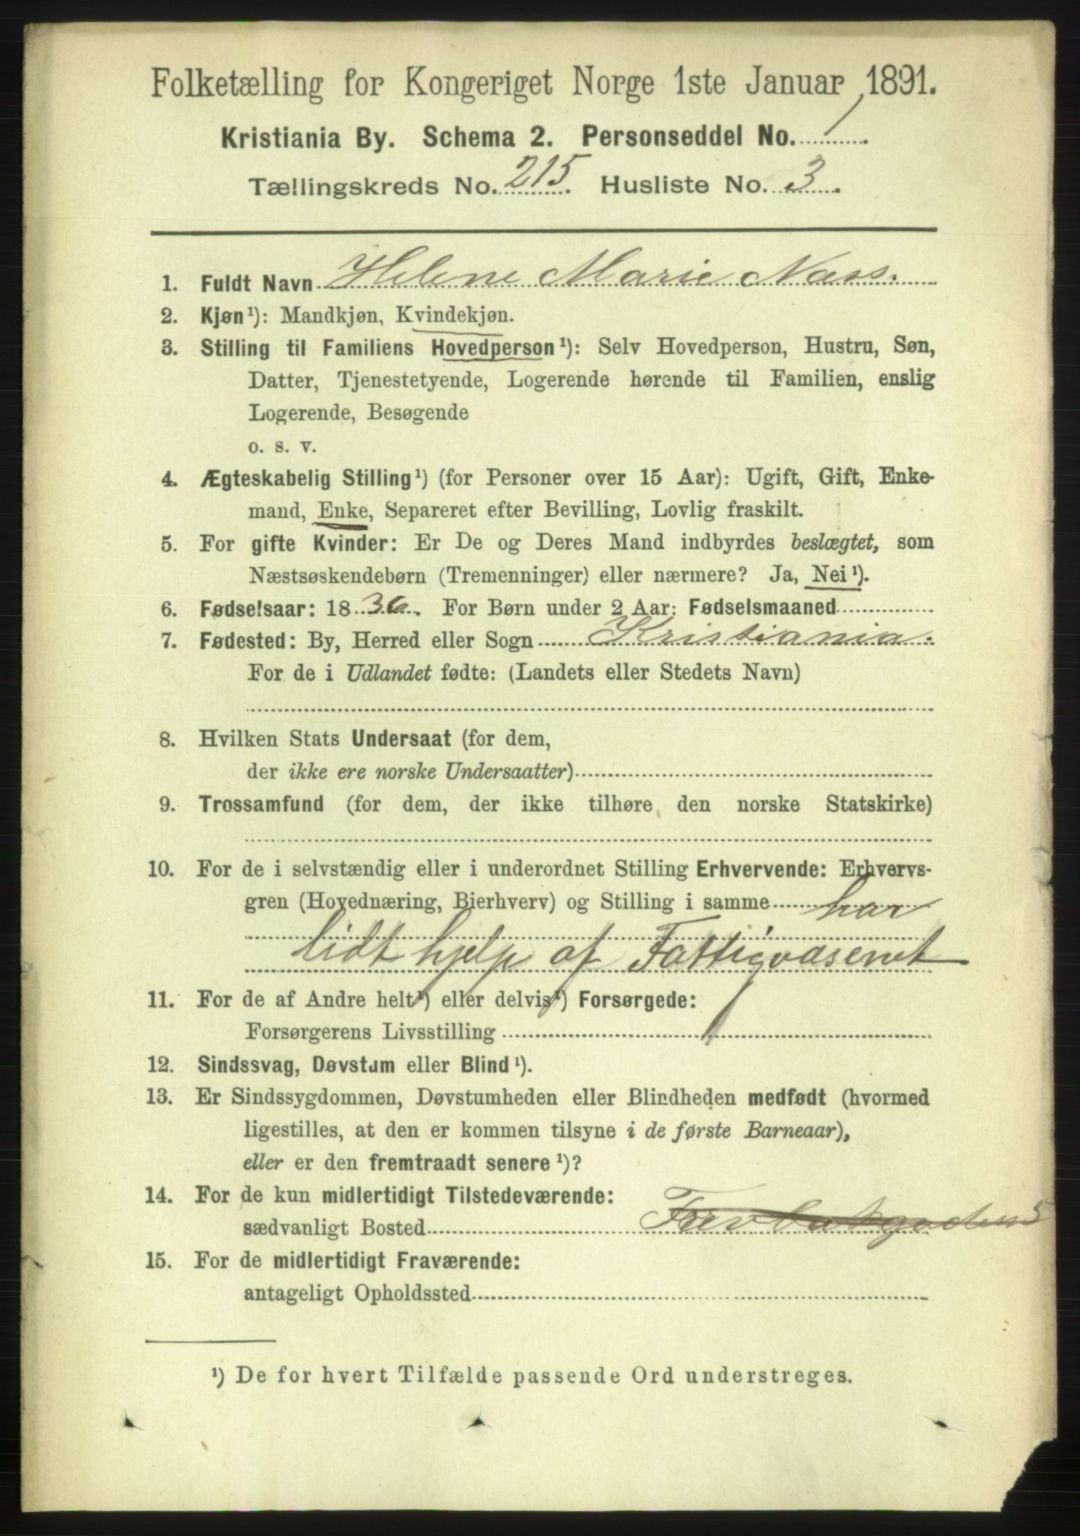 Folketælling for Kongeriget Norge 1ste Januar 1891.
Kristiania By. Schema 2. Personseddel No. 1.
Tællingskreds No. 215. Husliste No. 3.
1. Fuldt Navn Helene Marie Næss.
2. Kjøn¹): Mandkjøn, Kvindekjøn.
3. Stilling til Familiens Hovedperson¹): Selv Hovedperson, Hustru, Søn,
Datter, Tjenestetyende, Logerende hørende til Familien, enslig
Logerende, Besøgende
o. s. v.
4. Ægteskabelig Stilling¹) (for Personer over 15 Aar): Ugift, Gift, Enke-
mand, Enke, Separeret efter Bevilling, Lovlig fraskilt.
5. For gifte Kvinder: Er De og Deres Mand indbyrdes beslægtet, som
Næstsøskendebørn (Tremenninger) eller nærmere? Ja, Nei¹).
6. Fødselsaar: 1836. For Børn under 2 Aar: Fødselsmaaned
7. Fødested: By, Herred eller Sogn Kristiania.
For de i Udlandet fødte: (Landets eller Stedets Navn)
8. Hvilken Stats Undersaat (for dem,
der ikke ere norske Undersaatter)
9. Trossamfund (for dem, der ikke tilhøre den norske Statskirke)
10. For de i selvstændig eller i underordnet Stilling Erhvervende: Erhvervs-
gren (Hovednæring, Bierhverv) og Stilling i samme har
lidt hjelp af Fattigvæsenet
11. For de af Andre helt¹) eller delvis¹) Forsørgede:
Forsørgerens Livsstilling
12. Sindssvag, Døvstum eller Blind¹).
13. Er Sindssygdommen, Døvstumheden eller Blindheden medfødt (hvormed
ligestilles, at den er kommen tilsyne i de første Barneaar),
eller er den fremtraadt senere¹)?
14. For de kun midlertidigt Tilstedeværende:
sædvanligt Bosted
15. For de midlertidigt Fraværende:
antageligt Opholdssted
¹) De for hvert Tilfælde passende Ord understreges.